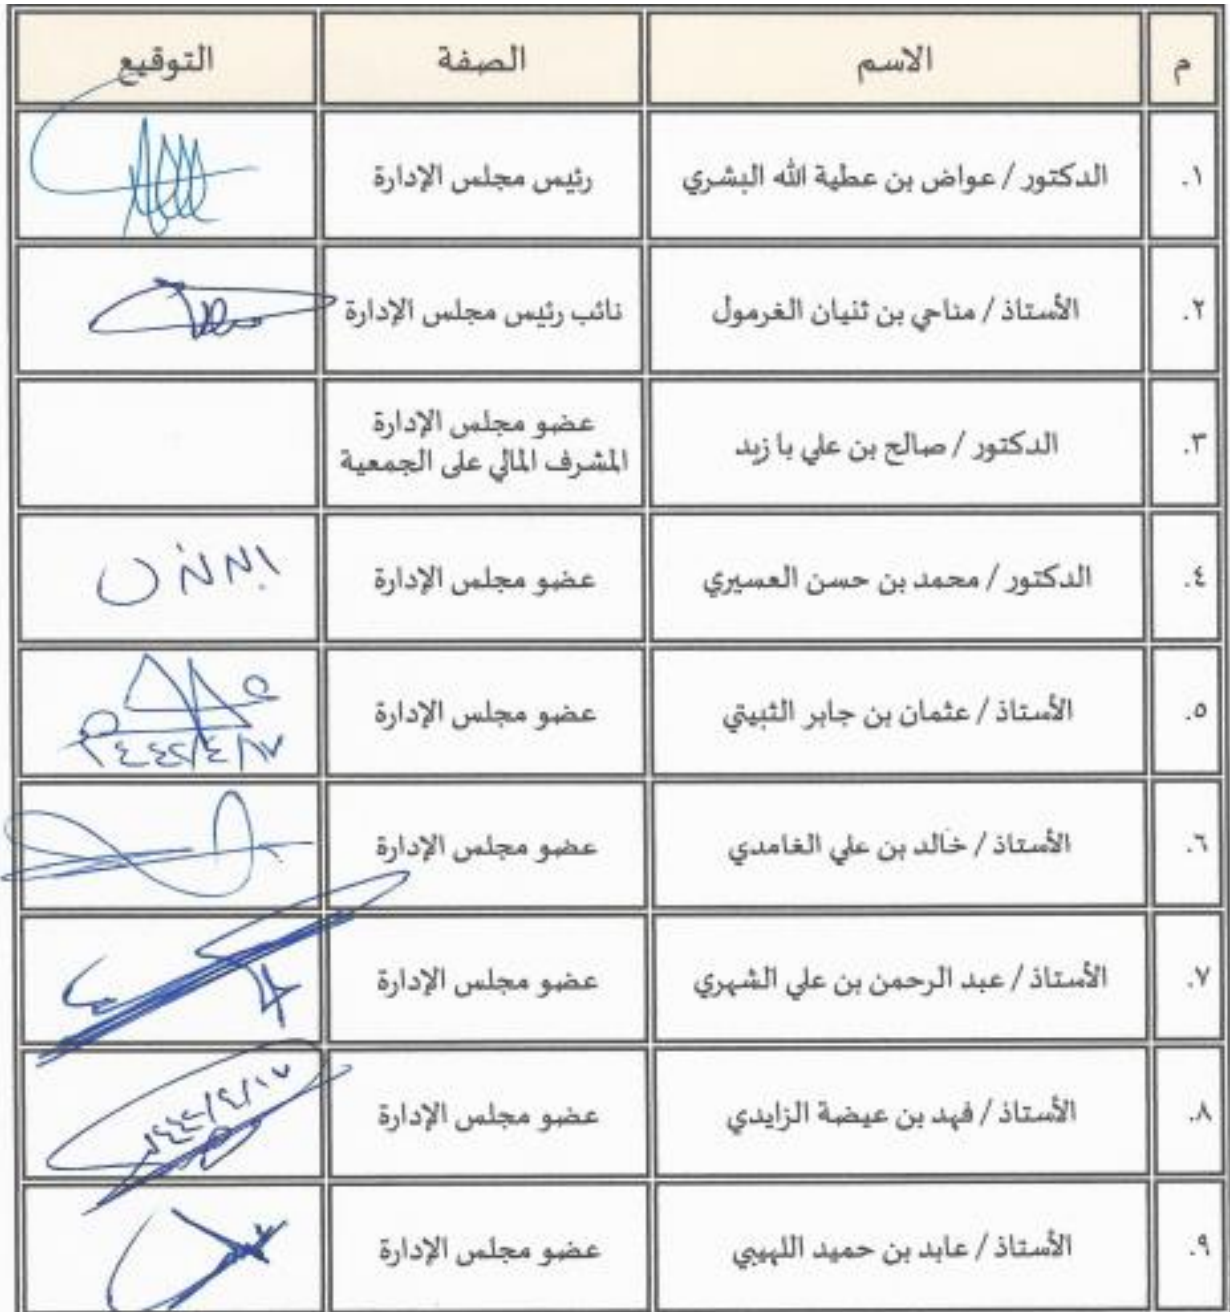 م الاسم الصفة التوقيع
١. الدكتور / عواض بن عطية الله البشري رئيس مجلس الإدارة
٢. الأستاذ / مناحي بن ثنيان الغرمول نائب رئيس مجلس الإدارة
٣. الدكتور / صالح بن علي با زيد عضو مجلس الإدارة
المشرف المالي على الجمعية
٤. الدكتور / محمد بن حسن العسيري عضو مجلس الإدارة
٥. الأستاذ / عثمان بن جابر الثبيتي عضو مجلس الإدارة
٦. الأستاذ / خالد بن علي الغامدي عضو مجلس الإدارة
٧. الأستاذ / عبد الرحمن بن علي الشهري عضو مجلس الإدارة
٨. الأستاذ / فهد بن عيضة الزايدي عضو مجلس الإدارة
٩. الأستاذ / عابد بن حميد اللهيبي عضو مجلس الإدارة